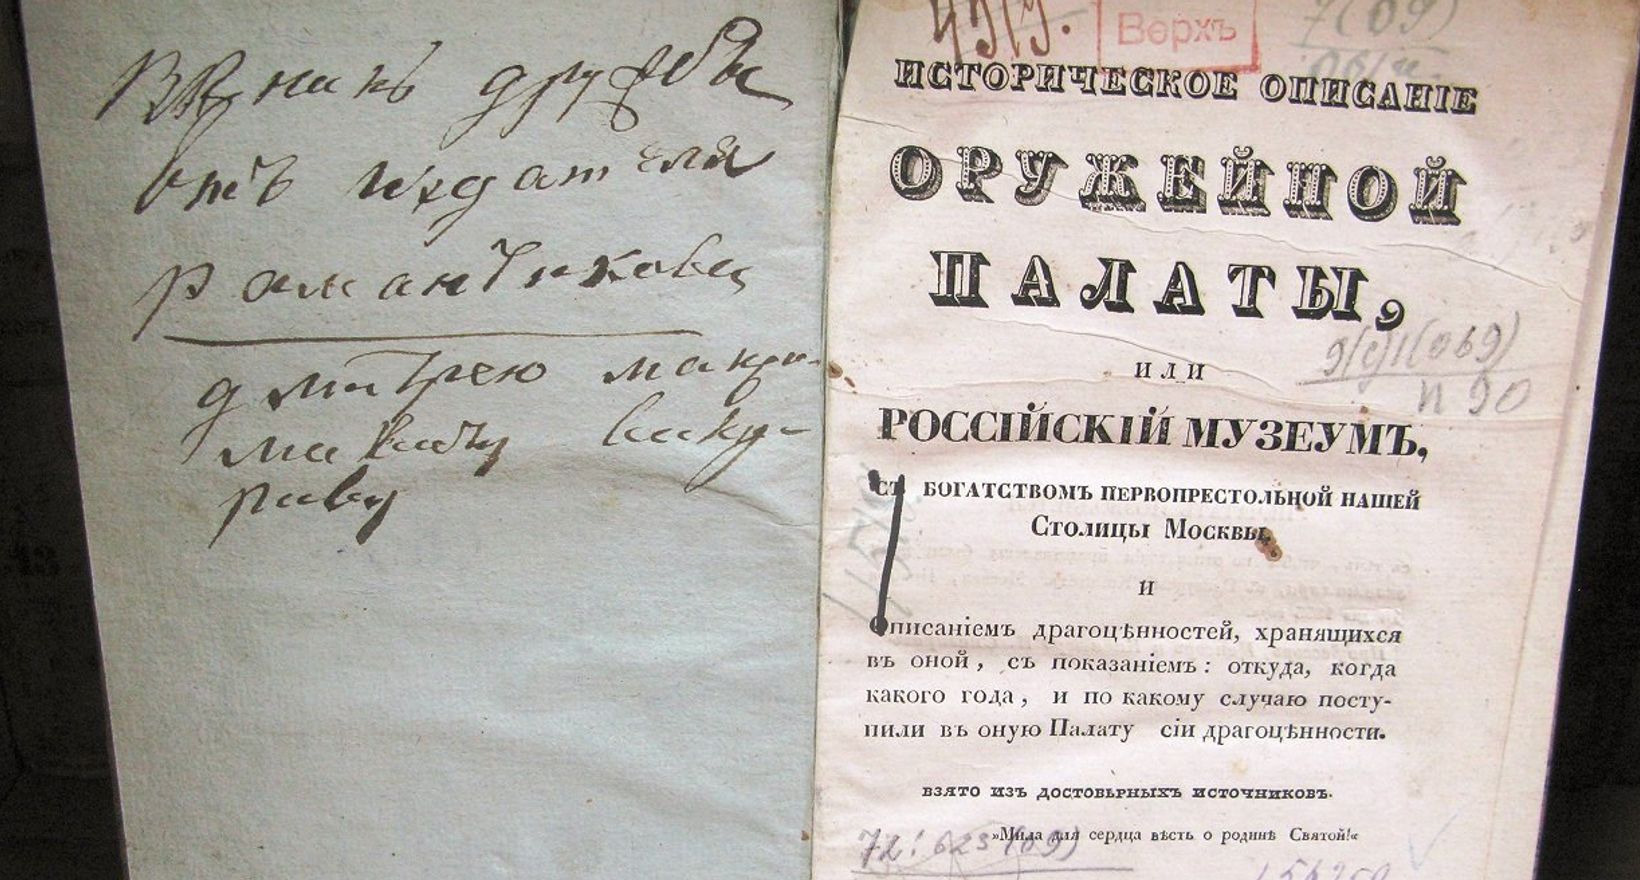 Въ знакъ дружбы
отъ издателя
Романтикова
Дмитрею Макси-
мавичу
Верхъ
7(09)
ИСТОРИЧЕСКОЕ ОПИСАНІЕ
ОРУЖЕЙНОЙ
ПАЛАТЫ,
ИЛИ
9(с)1(069)
П 90
РОССІЙСКІЙ МУЗЕУМЪ,
СЪ БОГАТСТВОМЪ ПЕРВОПРЕСТОЛЬНОЙ НАШЕЙ
Столицы Москвы,
И
Описаніемъ драгоцѣнностей, хранящихся
въ оной, съ показаніемъ: откуда, когда
какого года, и по какому случаю посту-
пили въ оную Палату сіи драгоцѣнности.
ВЗЯТО ИЗЪ ДОСТОВѢРНЫХЪ ИСТОЧНИКОВЪ.
»Мила для сердца вѣсть о родинѣ Святой!«
72:623(09)